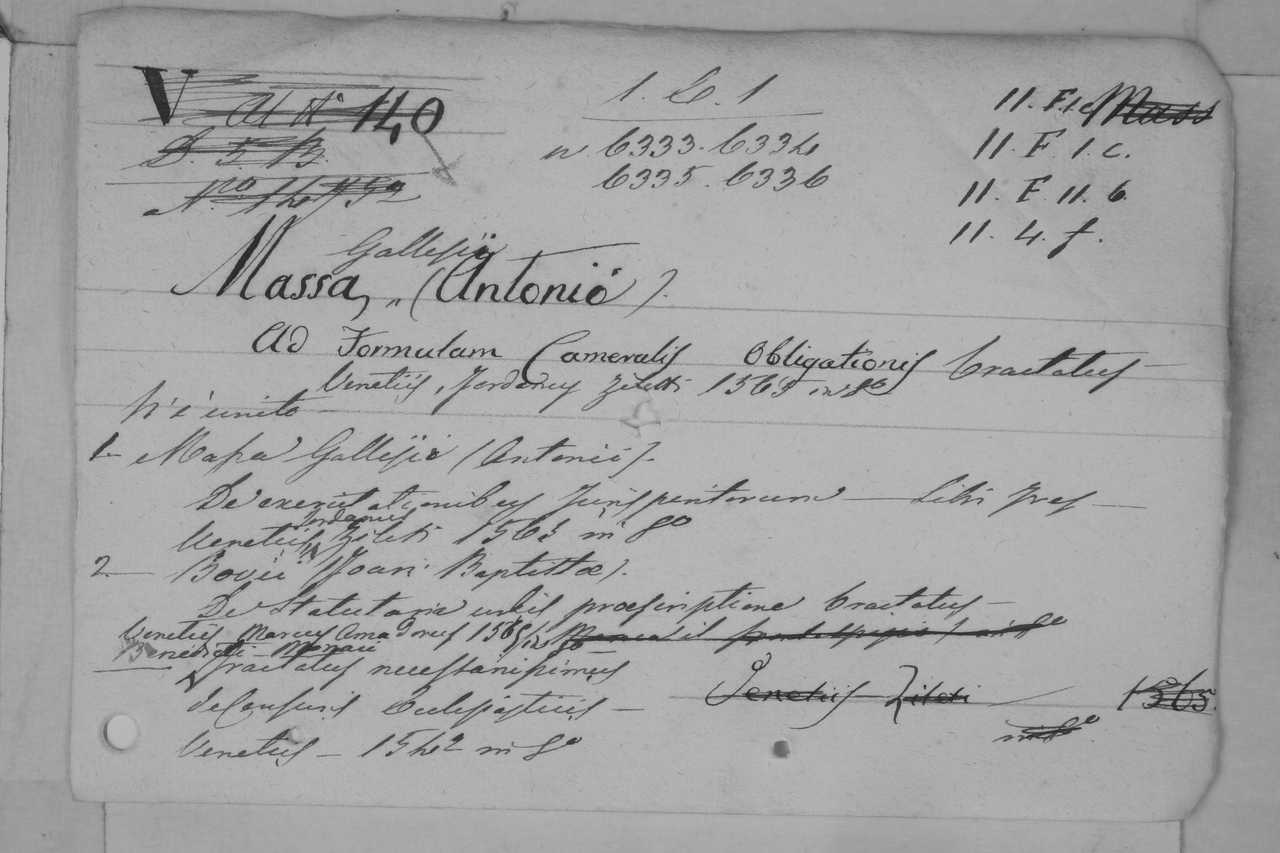 V Al N° 140
1. L. 1
11. F. 1. c Mass
D. 5 B.
n 6333. 6334
11. F. 1. c.
6335. 6336
11. F 11. 6
11. 4. f.
Gallesii
Massa, (Antonii).
Ad Formulam Cameralis Obligationis tractatus
Venetiis, Jordanus Ziletti 1563 in 8°
Vi è unito
1. Massa Gallesii (Antonii).
De exercitationibus Jurisperitorum — Libri Tres —
Jordanus
Venetiis Ziletti 1563 in 8°
2 — Bovii (Joan: Baptistae).
De Statutaria urbis praescriptione tractatus —
Venetiis Marcus Amadorus 1565 in 8°
Benedicti
Tractatus necessarissimus
de Censuris Ecclesiasticis — Venetiis Ziletti 1565.
in 8°
Venetiis — 1542 in 8°